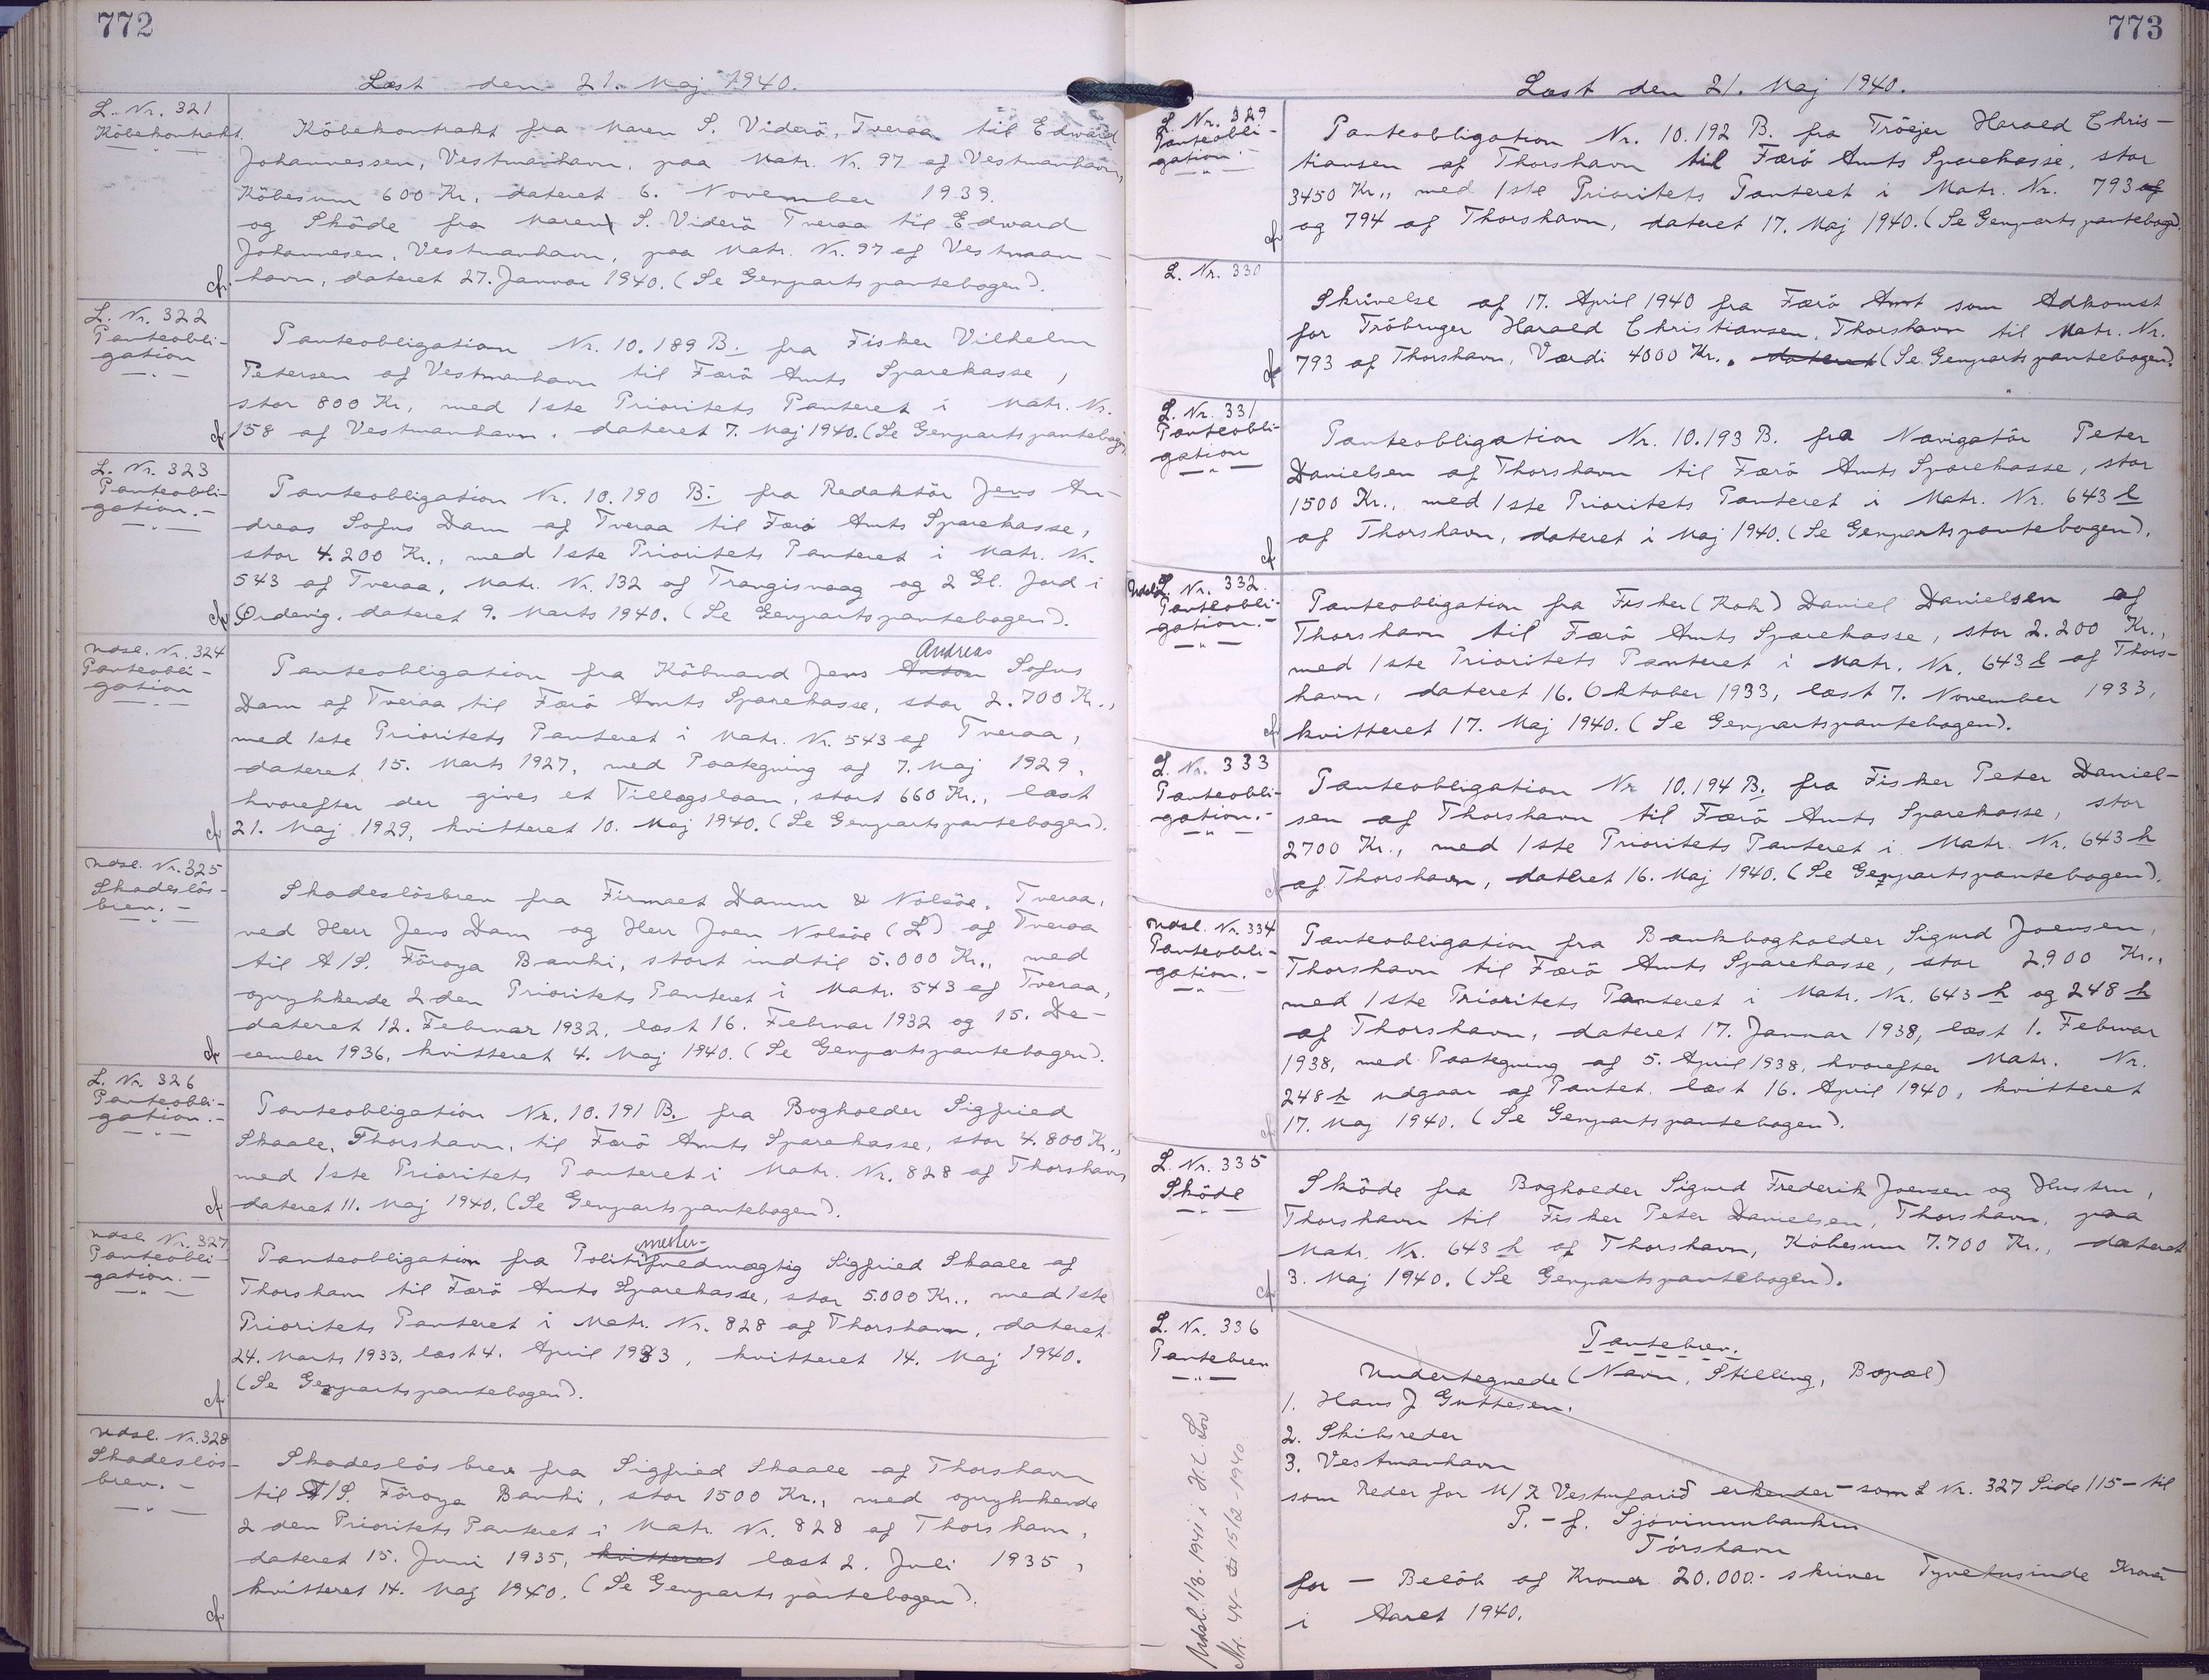 772
Læst den 21. Maj 1940.
L. Nr. 321
Köbekontrakt.
Köbekontrakt fra Maren S. Viderö, Tveraa til Edward
Johannessen, Vestmanhavn, paa Matr. Nr. 97 af Vestmanhavn,
Köbesum 600 Kr., dateret 6. November 1939.
og Sköde fra Maren S. Viderö Tveraa til Edward
Johannesen, Vestmanhavn, paa Matr. Nr. 97 af Vestmaan-
havn, dateret 27. Januar 1940. (Se Genpartspantebogen).
cfr.
L. Nr. 322
Panteobli-
gation
Panteobligation Nr. 10.189 B. fra Fisker Vilhelm
Petersen af Vestmanhavn til Færö Amts Sparekasse,
stor 800 Kr, med 1ste Prioritets Panteret i Matr. Nr.
158 af Vestmanhavn, dateret 7. Maj 1940. (Se Genpartspantebogen)
cfr
L. Nr. 323
Panteobli-
gation.-
Panteobligation Nr. 10.190 B. fra Redaktör Jens An-
dreas Sofus Dam af Tveraa til Færö Amts Sparekasse,
stor 4.200 Kr., med 1ste Prioritets Panteret i Matr. Nr.
543 af Tveraa, Matr. Nr. 132 af Trangisvaag og 2 Gl. Jord i
Ørdevig, dateret 9. Marts 1940. (Se Genpartspantebogen).
cfr
Udsl. Nr. 324
Panteobli-
gation
Andreas
Panteobligation fra Köbmand Jens Anton Sofus
Dam af Tveraa til Færö Amts Sparekasse, stor 2.700 Kr.,
med 1ste Prioritets Panteret i Matr. Nr. 543 af Tveraa,
dateret 15. Marts 1927, med Paategning af 7. Maj 1929,
hvorefter der gives et Tillægslaan, stort 660 Kr., læst
21. Maj 1929, kvitteret 10. Maj 1940. (Se Genpartspantebogen).
cfr
Udsl. Nr. 325
Skadeslös-
brev.-
Skadeslösbrev fra Firmaet Damm & Nolsöe, Tveraa,
ved Herr Jens Dam og Herr Joen Nolsöe (L) af Tveraa
til A/S. Föroya Banki, stort indtil 5.000 Kr., med
oprykkende 2den Prioritets Panteret i Matr. 543 af Tveraa,
dateret 12. Februar 1932, læst 16. Februar 1932 og 15. De-
cember 1936, kvitteret 4. Maj 1940. (Se Genpartspantebogen).
cfr
L. Nr. 326
Panteobli-
gation.-
Panteobligation Nr. 10.191 B. fra Bogholder Sigfried
Skaale, Thorshavn, til Færö Amts Sparekasse, stor 4.800 Kr.,
med 1ste Prioritets Panteret i Matr. Nr. 828 af Thorshavn,
dateret 11. Maj 1940. (Se Genpartspantebogen).
cfr
Udsl. Nr. 327
Panteobli-
gation.-
mester-
Panteobligation fra Politifuldmægtig Sigfried Skaale af
Thorshavn til Færö Amts Sparekasse, stor 5.000 Kr., med 1ste
Prioritets Panteret i Matr. Nr. 828 af Thorshavn, dateret
24. Marts 1933, læst 4. April 1933, kvitteret 14. Maj 1940.
(Se Genpartspantebogen).
cfr
Udsl. Nr. 328
Skadeslös-
brev.-
Skadeslös brev fra Sigfried Skaale af Thorshavn
til A/S. Föroya Banki, stor 1500 Kr., med oprykkende
2den Prioritets Panteret i Matr. Nr. 828 af Thorshavn,
dateret 15. Juni 1935, kvitteret læst 2. Juli 1935,
kvitteret 14. Maj 1940. (Se Genpartspantebogen).
cfr
773
Læst den 21. Maj 1940.
L. Nr. 329
Panteobli-
gation.-
Panteobligation Nr. 10.192 B. fra Tröejer Harald Chris-
tiansen af Thorshavn til Færö Amts Sparekasse, stor
3450 Kr., med 1ste Prioritets Panteret i Matr. Nr. 793 af
og 794 af Thorshavn, dateret 17. Maj 1940. (Se Genpartspantebog).
cfr
L. Nr. 330
Skrivelse af 17. April 1940 fra Færö Amt som Adkomst
for Tröbruger Harald Christiansen, Thorshavn til Matr. Nr.
793 af Thorshavn, Værdi 4000 Kr.. dateret (Se Genpartspantebogen).
cfr
L. Nr. 331
Panteobli-
gation
Panteobligation Nr. 10.193 B. fra Navigatör Peter
Danielsen af Thorshavn til Færö Amts Sparekasse, stor
1500 Kr., med 1ste Prioritets Panteret i Matr. Nr. 643 l
af Thorshavn, dateret i Maj 1940. (Se Genpartspantebogen).
cfr
Udsl. L. Nr. 332
Panteobli-
gation.-
Panteobligation fra Fisker (Kok) Daniel Danielsen af
Thorshavn til Færö Amts Sparekasse, stor 2.200 Kr.,
med 1ste Prioritets Panteret i Matr. Nr. 643 l af Thors-
havn, dateret 16. Oktober 1933, læst 7. November 1933,
kvitteret 17. Maj 1940. (Se Genpartspantebogen).
cfr
L. Nr. 333
Panteobli-
gation.-
Panteobligation Nr 10.194 B. fra Fisker Peter Daniel-
sen af Thorshavn til Færö Amts Sparekasse, stor
2700 Kr., med 1ste Prioritets Panteret i Matr. Nr. 643 h
af Thorshavn, dateret 16. Maj 1940. (Se Genpartspantebogen).
cfr
Udsl. Nr. 334
Panteobli-
gation.-
Panteobligation fra Bankbogholder Sigurd Joensen,
Thorshavn til Færö Amts Sparekasse, stor 2.900 Kr.,
med 1ste Prioritets Panteret i Matr. Nr. 643 h og 248 h
af Thorshavn, dateret 17. Januar 1938, læst 1. Februar
1938, med Paategning af 5. April 1938, hvorefter Matr. Nr.
248 h udgaar af Pantet læst 16. April 1940, kvitteret
17. Maj 1940. (Se Genpartspantebogen).
cfr
L. Nr. 335
Sköde
Sköde fra Bogholder Sigurd Frederik Joensen og Hustru,
Thorshavn til Fisker Peter Danielsen, Thorshavn, paa
Matr. Nr. 643 h af Thorshavn, Köbesum 7.700 Kr., dateret
3. Maj 1940. (Se Genpartspantebogen).
cfr
L. Nr. 336
Pantebrev
Pantebrev.
Undertegnede (Navn, Stilling, Bopæl)
1. Hans J Guttesen.
2. Skibsreder
3. Vestmanhavn
som Reder for M/K Vestmfarið erkender - som L Nr. 327 Side 115 - til
P.-f. Sjóvinnubankin
Tórshavn
for - Belöb af Kroner 20.000.- skriver Tyvetusinde Kroner
i Aaret 1940.
Udsl. 1/8. 1941 i H. L. Lov
Nr. 44 15/2-1940